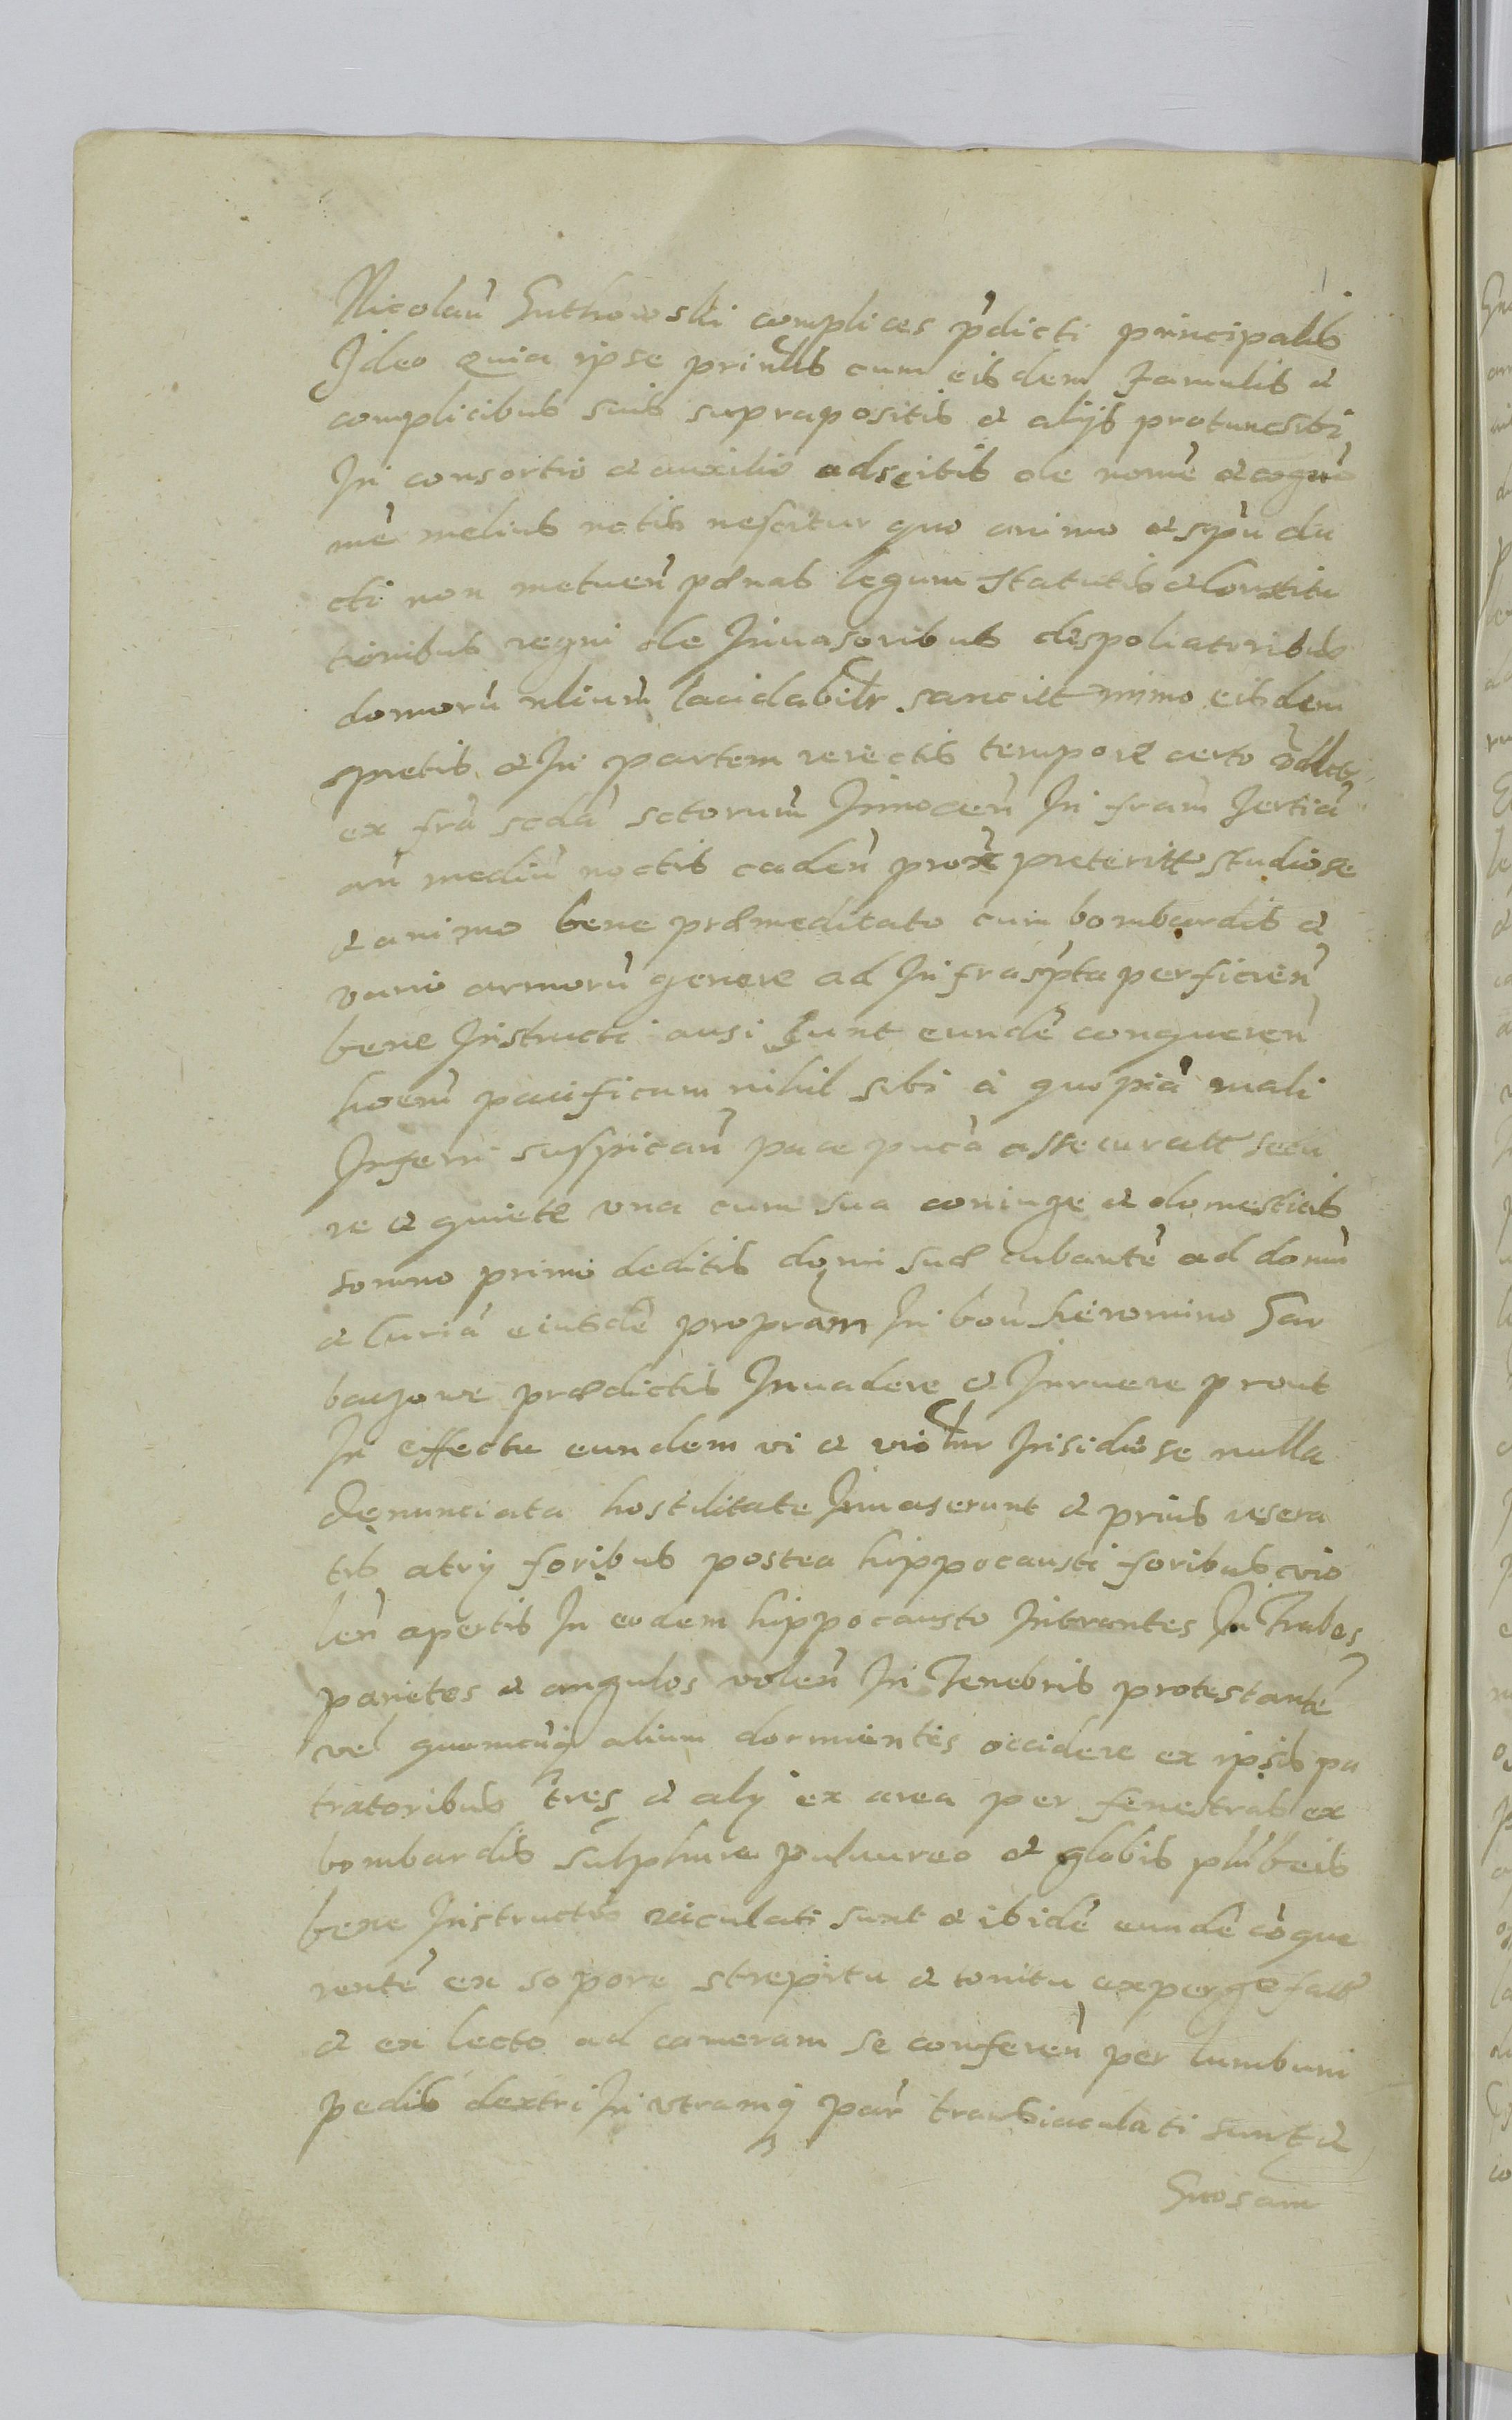 Nicolaũ Gutkowski complices p̃dicti principalis
Ideo quia ipse prinlls cum eisdem famulis &
complicibus suis suprapositis & alijs protuncsibi
In consortio & auxilio adscitis de nomē & cogno
mē melius notis nescitur quo animo & spũ du
cti non metuen̄ pœnas legum Statutis & Constitu
tionibus regni de Inuasoribus despoliatoribus
domorũ nlium laudabilr sancitt imo eisdem
spretis & In partem reiectis tempore certo
ex frã scdã sctorum Innocen̄ In fram Tertiã
an̄ mediũ noctis caden̄ prox̃ preteritt studiose
& animo bene præmeditato cum bombardis &
vario armorũ genere ad Infrascp̃ta perficien̄
bene Instructi ausi sunt eundẽ conqueren̄
hoem̃ pacificum nihil sibi à quopiã mali
Inferri suspican̄ pace pucã assecuratt secu
re & quiete vna cum sua coniuge & domesticis
somno primo deditis domi suæ cubantẽ ad domũ
& Curiã eiusdẽ propram In bon̄ Hieronimo Gar
bauzowe prædictis Inuadere & Irruere prout
In effectu eundem vi & violnr Insidiose nulla
denunciata hostilitate Inuaserunt & prius resera
tis atrij foribus postea hippocausti foribus vio
len̄ apertis In eodem hippocausto Intrantes In Trabes
parietes & angulos volen̄ In Tenebris protestantẽ
vel quemcũq alium dormientes occidere ex ipsis pa
tratoribus tres & alij ex area per fenestras ex
bombardis sulphure puluureo & globis plũbeis
bene Instructis eiaculati sunt & ibidẽ eundẽ cõque
rentẽ ex sopore strepitu & tonitu expergefatt
& ex lecto ad cameram se conferen̄ per lumbum
pedis dextri In vtramq par̄ transiaculati sunt &